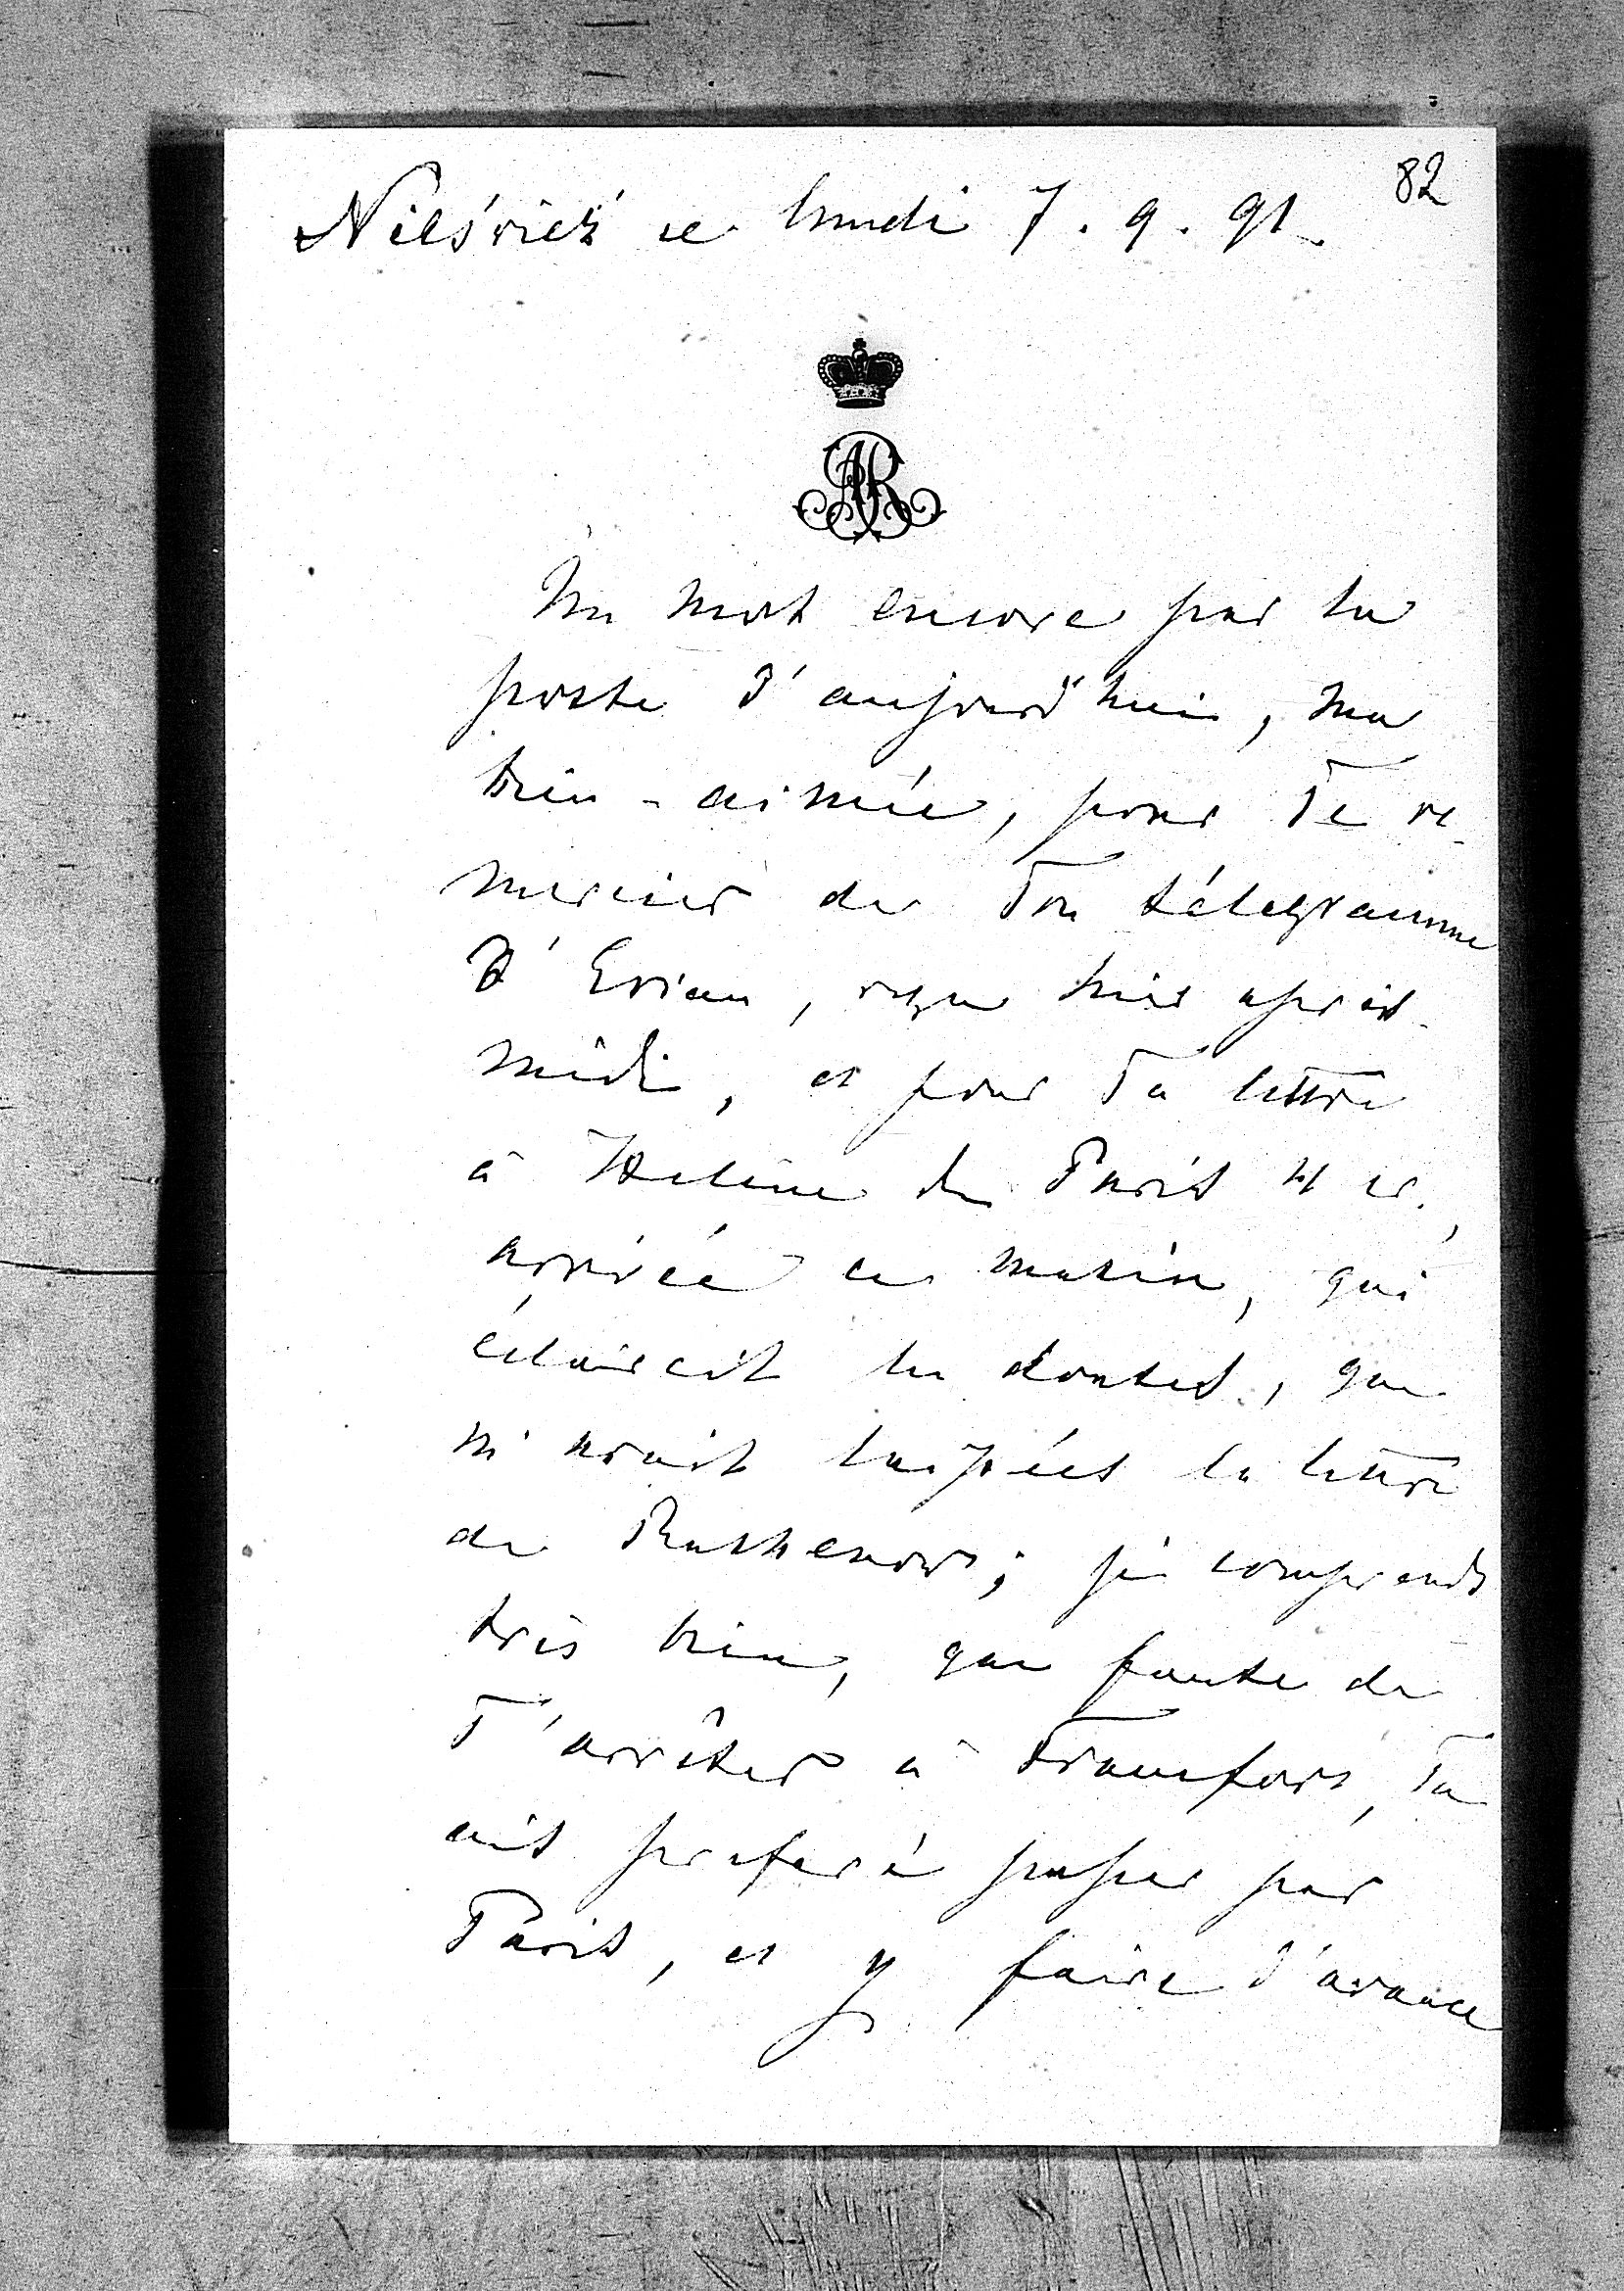 82
Nieśwież ce lundi 7. 9. 91.
AR
Un mot encore par la
poste d'aujourd'hui, ma
bien-aimée, pour Te re-
mercier de Ton télegramme
d'Evian, reçu hier après-
midi, et pour Ta lettre
à Helène de Paris 4 cr.,
arrivée ce matin, qui
éclaircit les doutes, que
m'avait laissées la lettre
de Rathenow; je comprends
très bien, que faute de
T'arrêter à Francfort, Tu
ais preferé passer par
Paris, et y faire d'avance